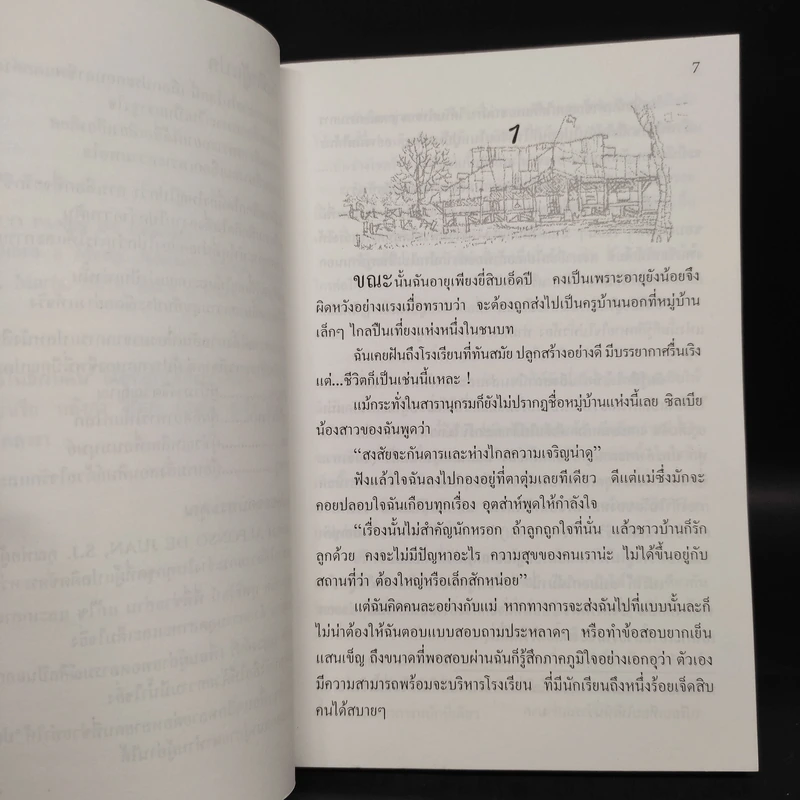 7
1
ขณะนั้นฉันอายุเพียงยี่สิบเอ็ดปี คงเป็นเพราะอายุยังน้อยจึง
ผิดหวังอย่างแรงเมื่อทราบว่า จะต้องถูกส่งไปเป็นครูบ้านนอกที่หมู่บ้าน
เล็กๆ ไกลปืนเที่ยงแห่งหนึ่งในชนบท
ฉันเคยฝันถึงโรงเรียนที่ทันสมัย ปลูกสร้างอย่างดี มีบรรยากาศรื่นเริง
แต่...ชีวิตก็เป็นเช่นนี้แหละ !
แม้กระทั่งในสารานุกรมก็ยังไม่ปรากฏชื่อหมู่บ้านแห่งนี้เลย ซิลเบีย
น้องสาวของฉันพูดว่า
“สงสัยจะกันดารและห่างไกลความเจริญน่าดู”
ฟังแล้วใจฉันลงไปกองอยู่ที่ตาตุ่มเลยทีเดียว ดีแต่แม่ซึ่งมักจะ
คอยปลอบใจฉันเกือบทุกเรื่อง อุตส่าห์พูดให้กำลังใจ
“เรื่องนั้นไม่สำคัญนักหรอก ถ้าลูกถูกใจที่นั่น แล้วชาวบ้านก็รัก
ลูกด้วย คงจะไม่มีปัญหาอะไร ความสุขของคนเราน่ะ ไม่ได้ขึ้นอยู่กับ
สถานที่ว่า ต้องใหญ่หรือเล็กสักหน่อย”
แต่ฉันคิดคนละอย่างกับแม่ หากทางการจะส่งฉันไปที่แบบนั้นละก็
ไม่น่าต้องให้ฉันตอบแบบสอบถามประหลาดๆ หรือทำข้อสอบยากเย็น
แสนเข็ญ ถึงขนาดที่พอสอบผ่านฉันก็รู้สึกภาคภูมิใจอย่างเอกอุว่า ตัวเอง
มีความสามารถพร้อมจะบริหารโรงเรียน ที่มีนักเรียนถึงหนึ่งร้อยเจ็ดสิบ
คนได้สบายๆ